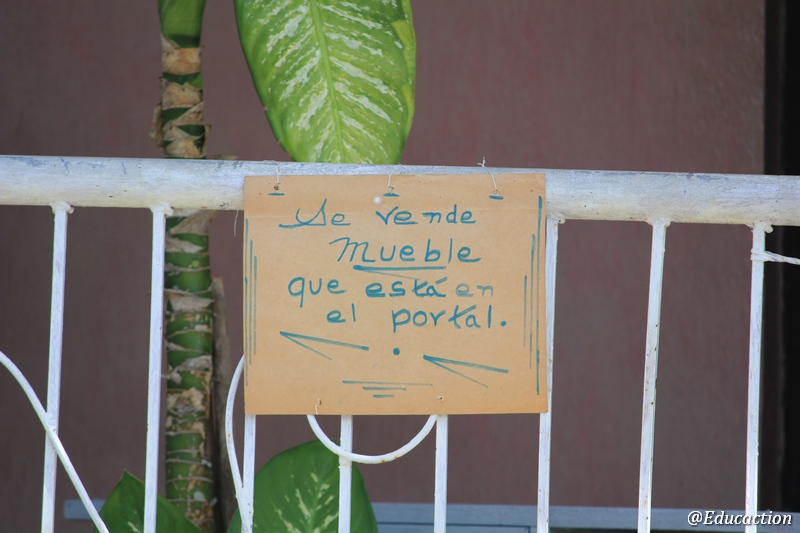 Se vende
Mueble
que está en
el portal.
@Educaction